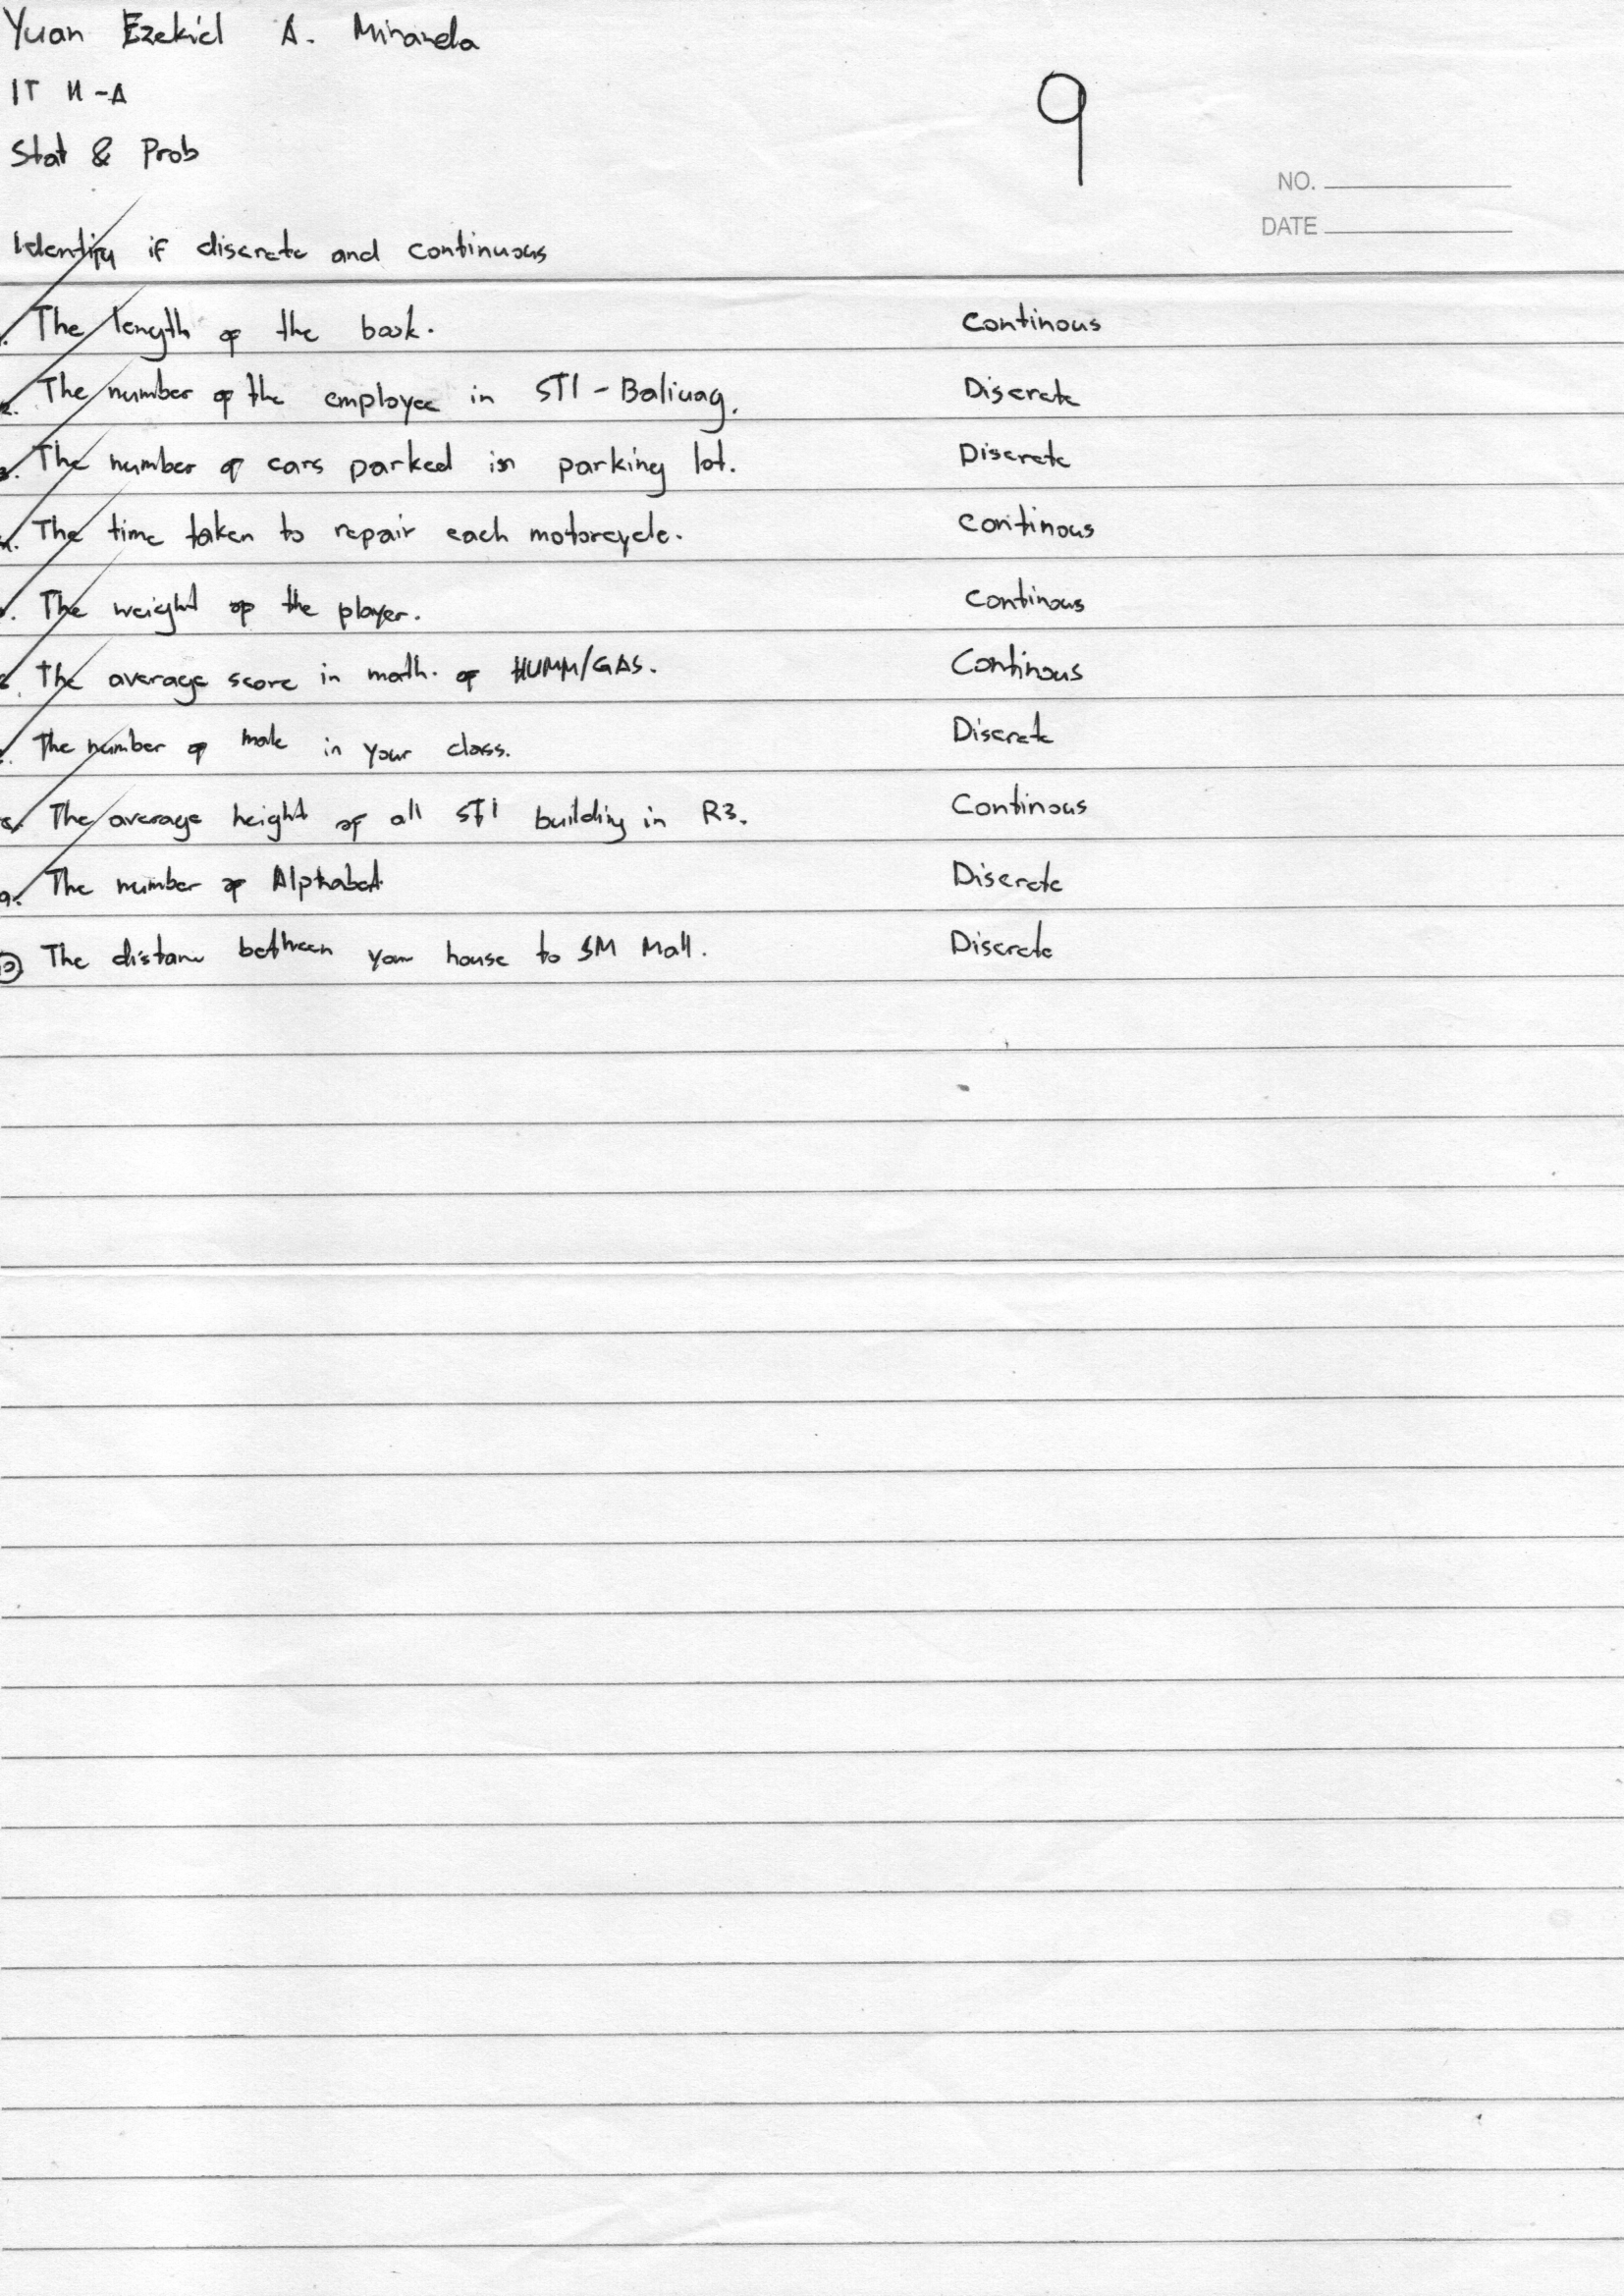 Yuan Ezekiel A. Miranda
IT 11-A
Stat & Prob
9
NO.
DATE
Identify if discrete and continuous
The length of the book. Continous
2. The number of the employee in STI - Baliuag. Discrete
3. The number of cars parked in parking lot. Discrete
4. The time taken to repair each motorcycle. Continous
The weight of the player. Continous
6. The average score in math. of HUMM/GAS. Continous
The number of male in your class. Discrete
8. The average height of all STI building in R3. Continous
9. The number of Alphabet Discrete
10 The distanc between your house to SM Mall. Discrete